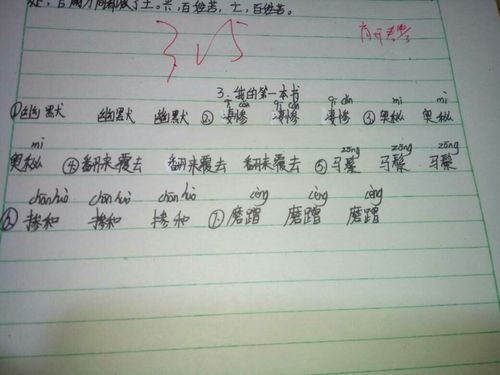 兴，百姓苦，亡，百姓苦。
3.我的第一本书
qī cǎn qī cǎn qī cǎn mì mì
①幽默 幽默 幽默 ②凄惨 凄惨 凄惨 ③奥秘 奥秘
mì zōng zōng zōng
奥秘 ④翻来覆去 翻来覆去 翻来覆去 ⑤马鬃 马鬃 马鬃
chān huò chān huò chān huò cèng cèng cèng
⑥掺和 掺和 掺和 ⑦磨蹭 磨蹭 磨蹭